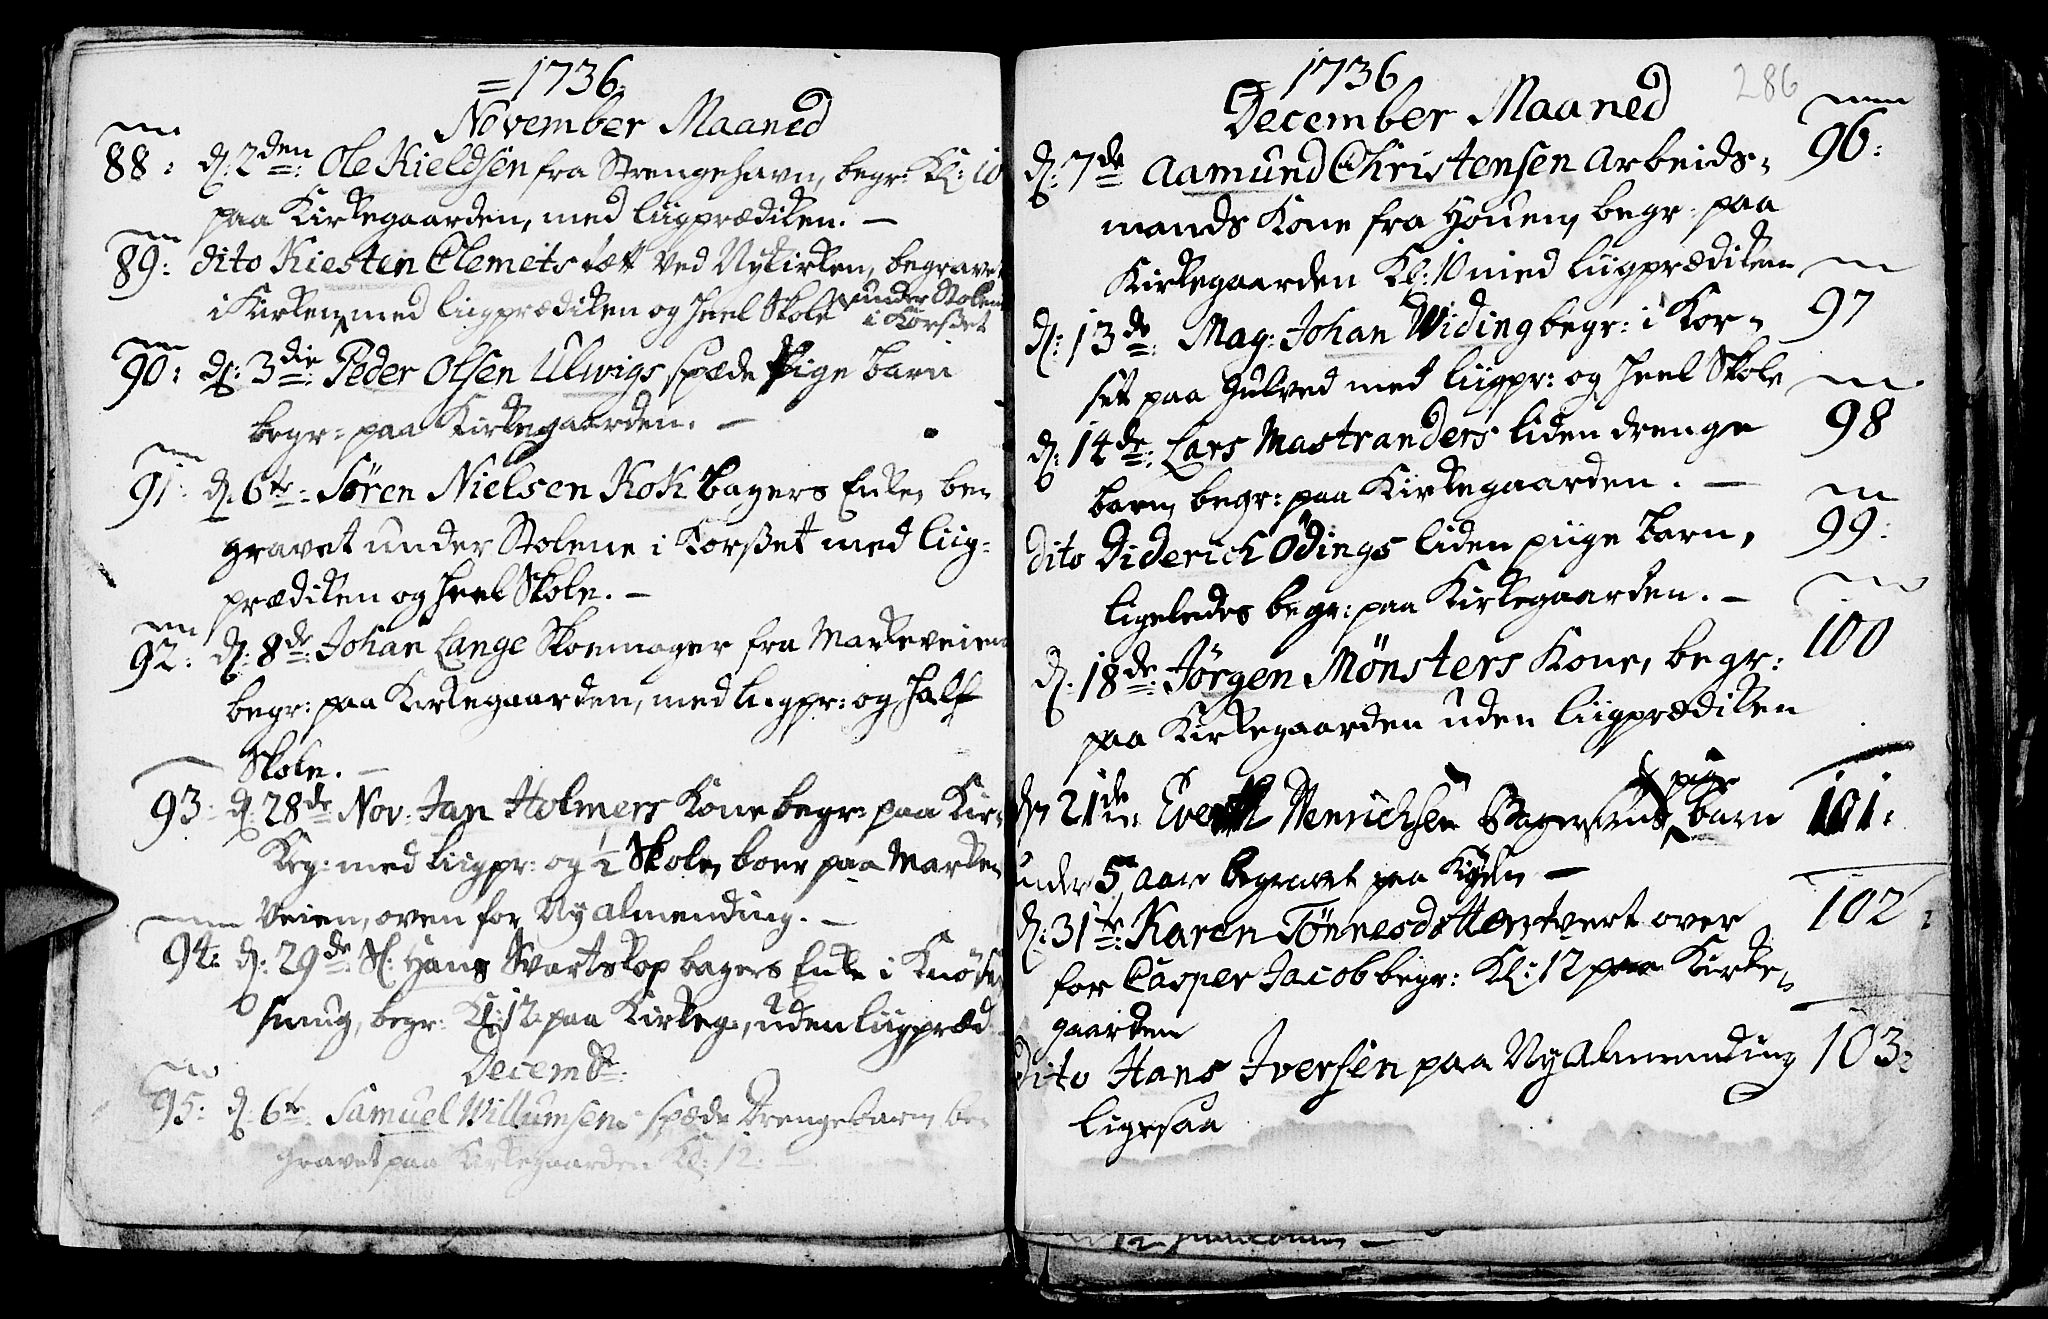 =1736.
November Maaned
88: d: 2den: Ole Kieldsen fra Strengehavn, begr: Kl: 10
paa Kirkegaarden, med liigprædiken. —
89: dito Kiesten Clemets tætt ved Nykirken, begravet
i Kirken, med liigprædiken og heel Skole under Stolene
i Korsset
90: d: 3die: Peder Olsen Ulvigs spæde Pige barn
begr: paa Kirkegaarden. —
91: d. 6te: Søren Nielsen Kok bagers Enke, be-
gravet under Stolene i Korsset med liig-
prædiken og heel Skole. —
92: d: 8de: Johan Lange Skoemager fra Markeveien
begr: paa Kirkegaarden, med liigpr: og half
Skole. —
93: d. 28de Nov: Jan Holmers Kone begr: paa Kir-
keg: med liigpr: og ½ Skole, boer paa Marke-
Veien, oven for Ny almending. —
94: d: 29de Sl. Hans Svartskop bagers Enke i Knøse-
smug, begr: Kl: 12. paa Kirkeg:, uden liigpræd
Decembr:
95: d. 6te: Samuel Willumsens spæde Drengebarn, be-
gravet paa Kirkegaarden Kl: 12: —
1736
286
December Maaned
d: 7de Aamund Christensen Arbeids- 96:
mands Kone fra Houen, begr: paa
Kirkegaarden Kl: 10 med liigprædiken
d: 13de: Mag: Johan Widing begr: i Kor- 97
set paa Gulved med liigpr: og heel Skole
d: 14de: Lars Mastranders liden drenge 98
barn, begr: paa Kirkegaarden. —
dito Diderich Ödings liden piige barn, 99:
ligeledes begr: paa Kirkegaarden. —
d. 18de: Jørgen Mønsters Kone, begr: 100
paa Kirkegaarden uden liigprædiken
pige
21de Henrichsen barn 101:
under 5 aar begravet paa —
d: 31te: Karen Tönnesdotter, tvert over 102:
for Casper Jacob begr: Kl: 12 paa Kirke-
gaarden
dito Hans Iversen paa Ny Almending 103:
ligesaa